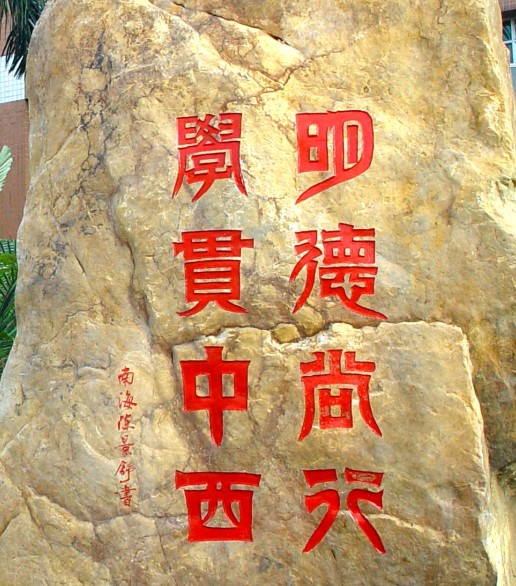 明德尚行
學貫中西
南海陳景舒書